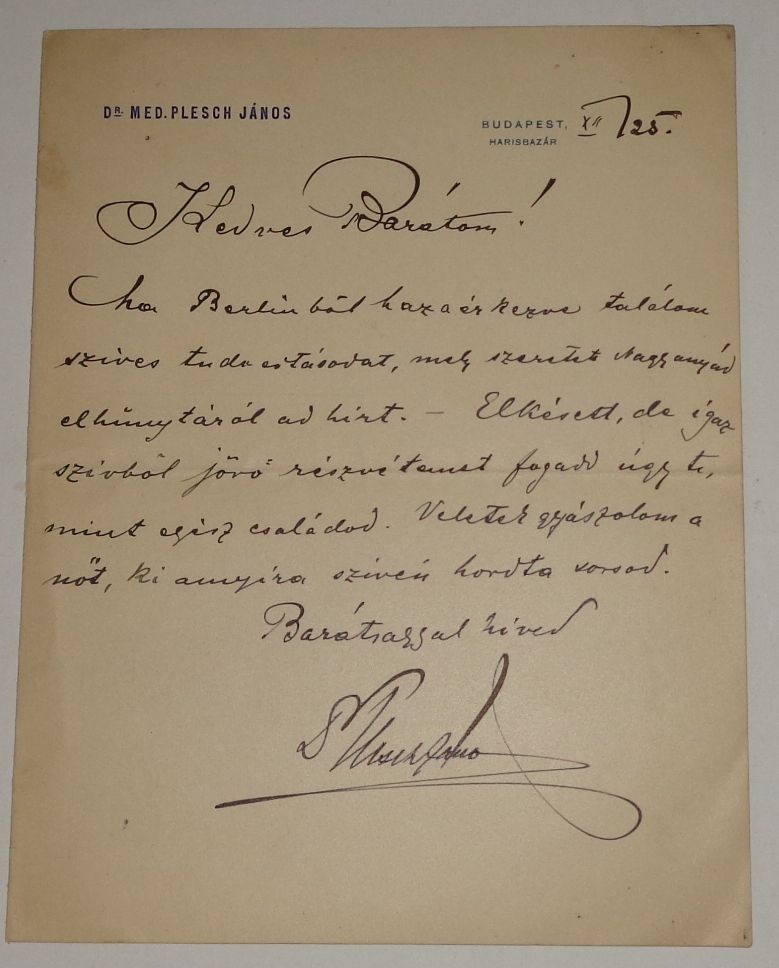 DR. MED. PLESCH JÁNOS
BUDAPEST, XII/25.
HARISBAZÁR
Kedves Barátom!
ma Berlinből hazaérkezve találom
szives tudositásodat, mely szeretet Nagyanyád
elhúnytáról ad hirt. – Elkésett, de igaz
szívből jövő részvétemet fogadd úgy te,
mint egész családod. Veletek gyászolom a
nőt, ki annyira szivén hordta sorsod.
Barátsággal híved
Dr Plesch János